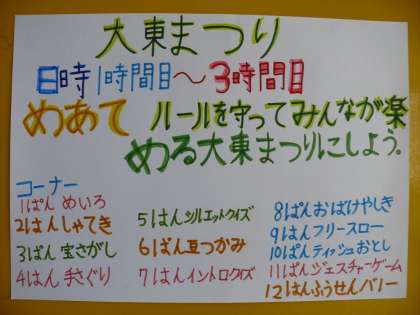 大東まつり
日時 1時間目～3時間目
めあて ルールを守ってみんなが楽
める大東まつりにしよう。
コーナー
1ぱん めいろ
2はんしゃてき
3ぱん 宝さがし
4はん 手さぐり
5はんシルエットクイズ
6ぱん豆つかみ
7はんイントロクイズ
8ぱんおばけやしき
9はんフリースロー
10ぱんティッシュおとし
11ぱんジェスチャーゲーム
12はんふうせんバレー